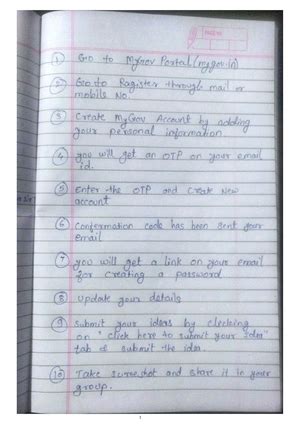 ① Go to MyGov Portal (mygov.in)
② Go to Register through mail or
mobile No.
③ Create MyGov Account by adding
your personal information
④ you will get an OTP on your email
id.
⑤ Enter the OTP and Create New
account
⑥ Confermation code has been sent your
email
⑦ you will get a link on your email
for creating a password
⑧ Update your details
⑨ Submit your ideas by clicking
on "click here to submit your idea"
tab & submit the idea.
⑩ Take screenshot and share it in your
group.
1